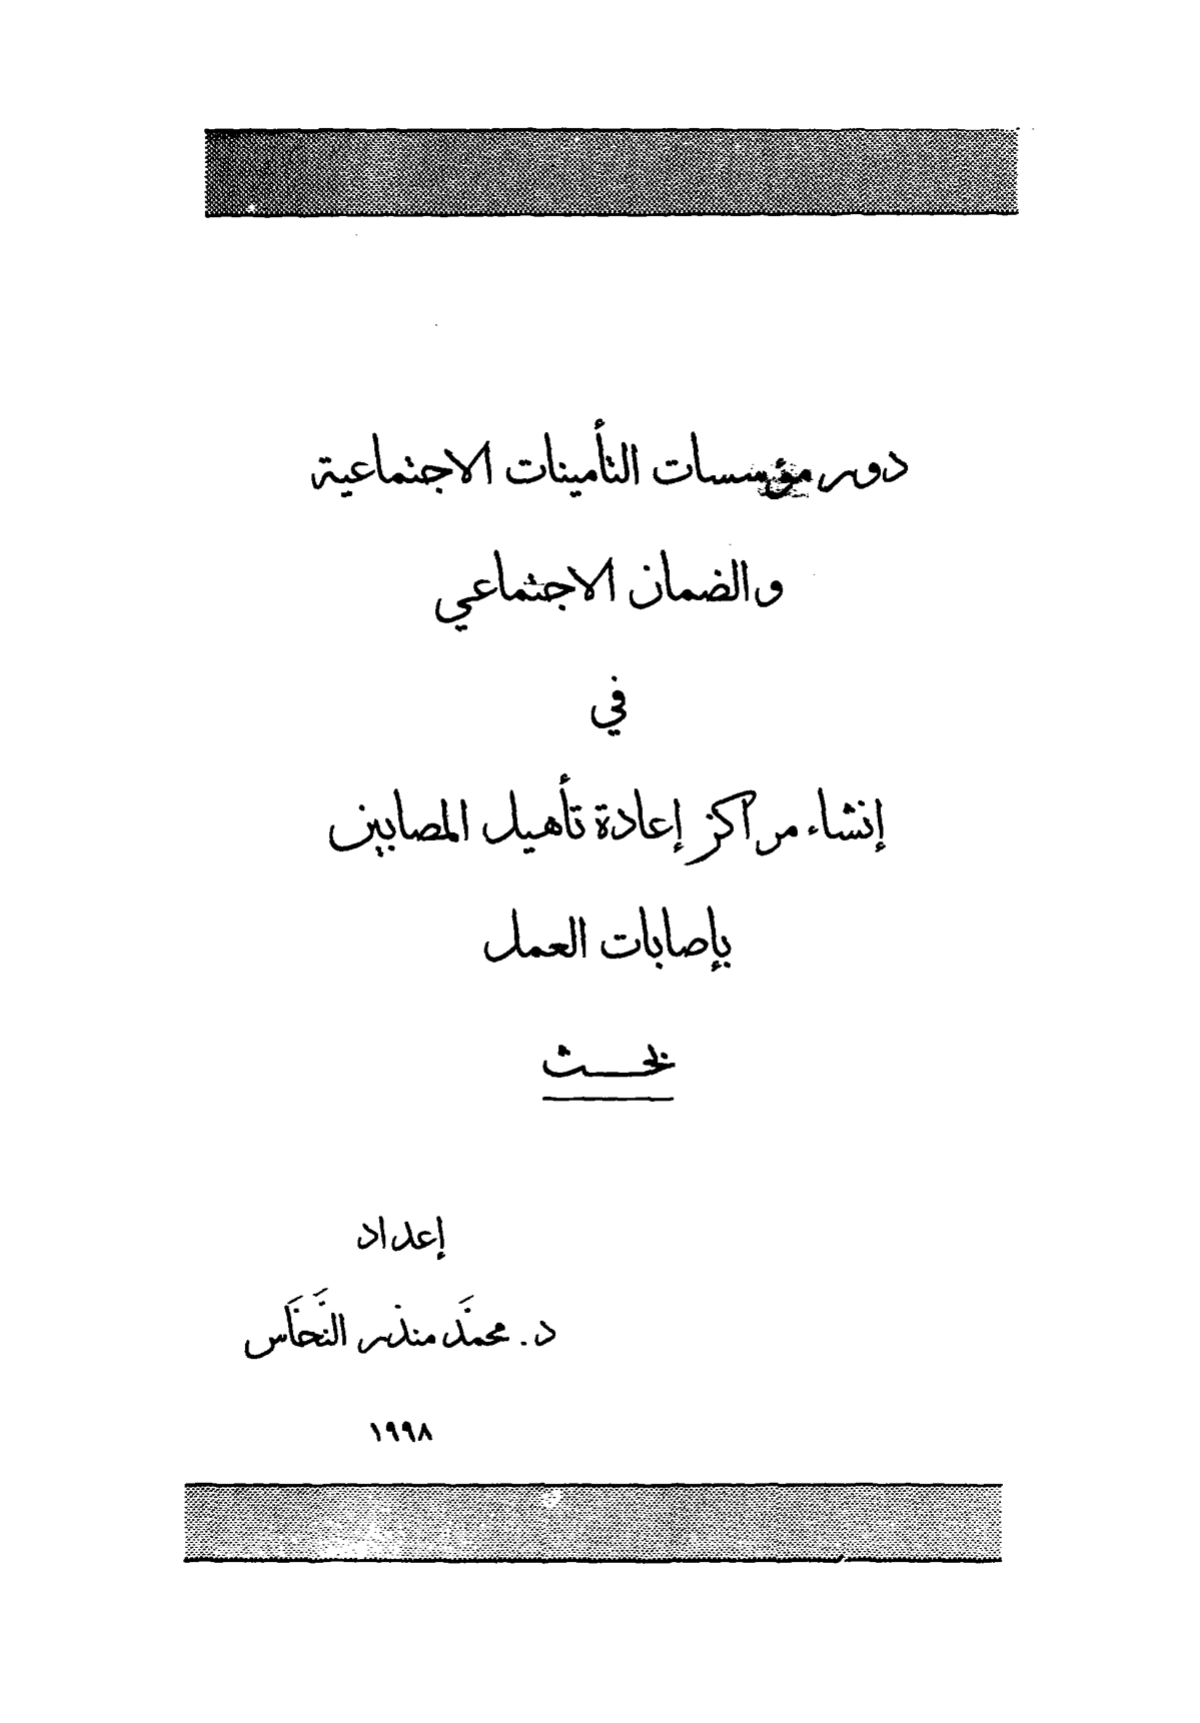 دور مؤسسات التأمينات الاجتماعية
والضمان الاجتماعي
في
إنشاء مراكز إعادة تأهيل المصابين
بإصابات العمل
بحـــث
إعداد
د. محمَّد منذر النَّحَّاس
١٩٩٨